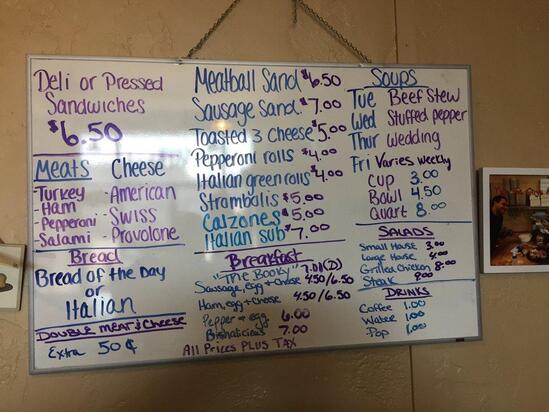 Deli or Pressed
Sandwiches
$6.50
Meats Cheese
-Turkey -American
-Ham -Swiss
-Pepperoni -Provolone
-Salami
Bread
Bread of the Day
or
Italian
Double Meat & Cheese
Extra 50¢
Meatball Sand $6.50
Sausage Sand. $7.00
Toasted 3 Cheese $5.00
Pepperoni rolls $4.00
Italian green rolls $4.00
Strombolis $5.00
Calzones $5.00
Italian Sub $7.00
Breakfast
"The Booky" 7.00(D)
Sausage, egg + cheese 4.50/6.50
Ham, egg + cheese 4.50/6.50
Pepper & egg 6.00
7.00
All Prices PLUS TAX
Soups
Tue Beef Stew
Wed Stuffed pepper
Thur Wedding
Fri Varies weekly
Cup 3.00
Bowl 4.50
Quart 8.00
Salads
Small House 3.00
Large House 4.00
Grilled Chicken 8.00
Steak 9.00
Drinks
Coffee 1.00
Water 1.00
Pop 1.00